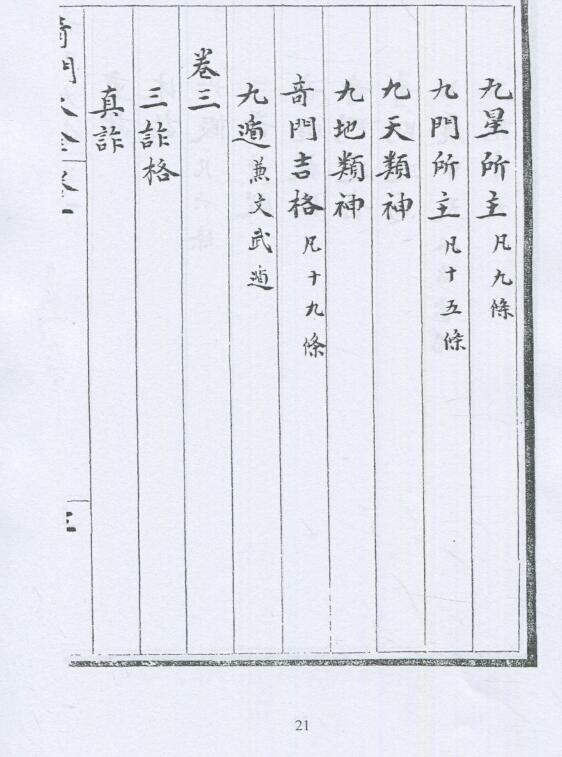 九星所主 凡九條
九門所主 凡十五條
九天類神
九地類神
奇門吉格 凡十九條
九遁 兼文武遁
卷三
三詐格
真詐
奇門大全 卷一
三
21